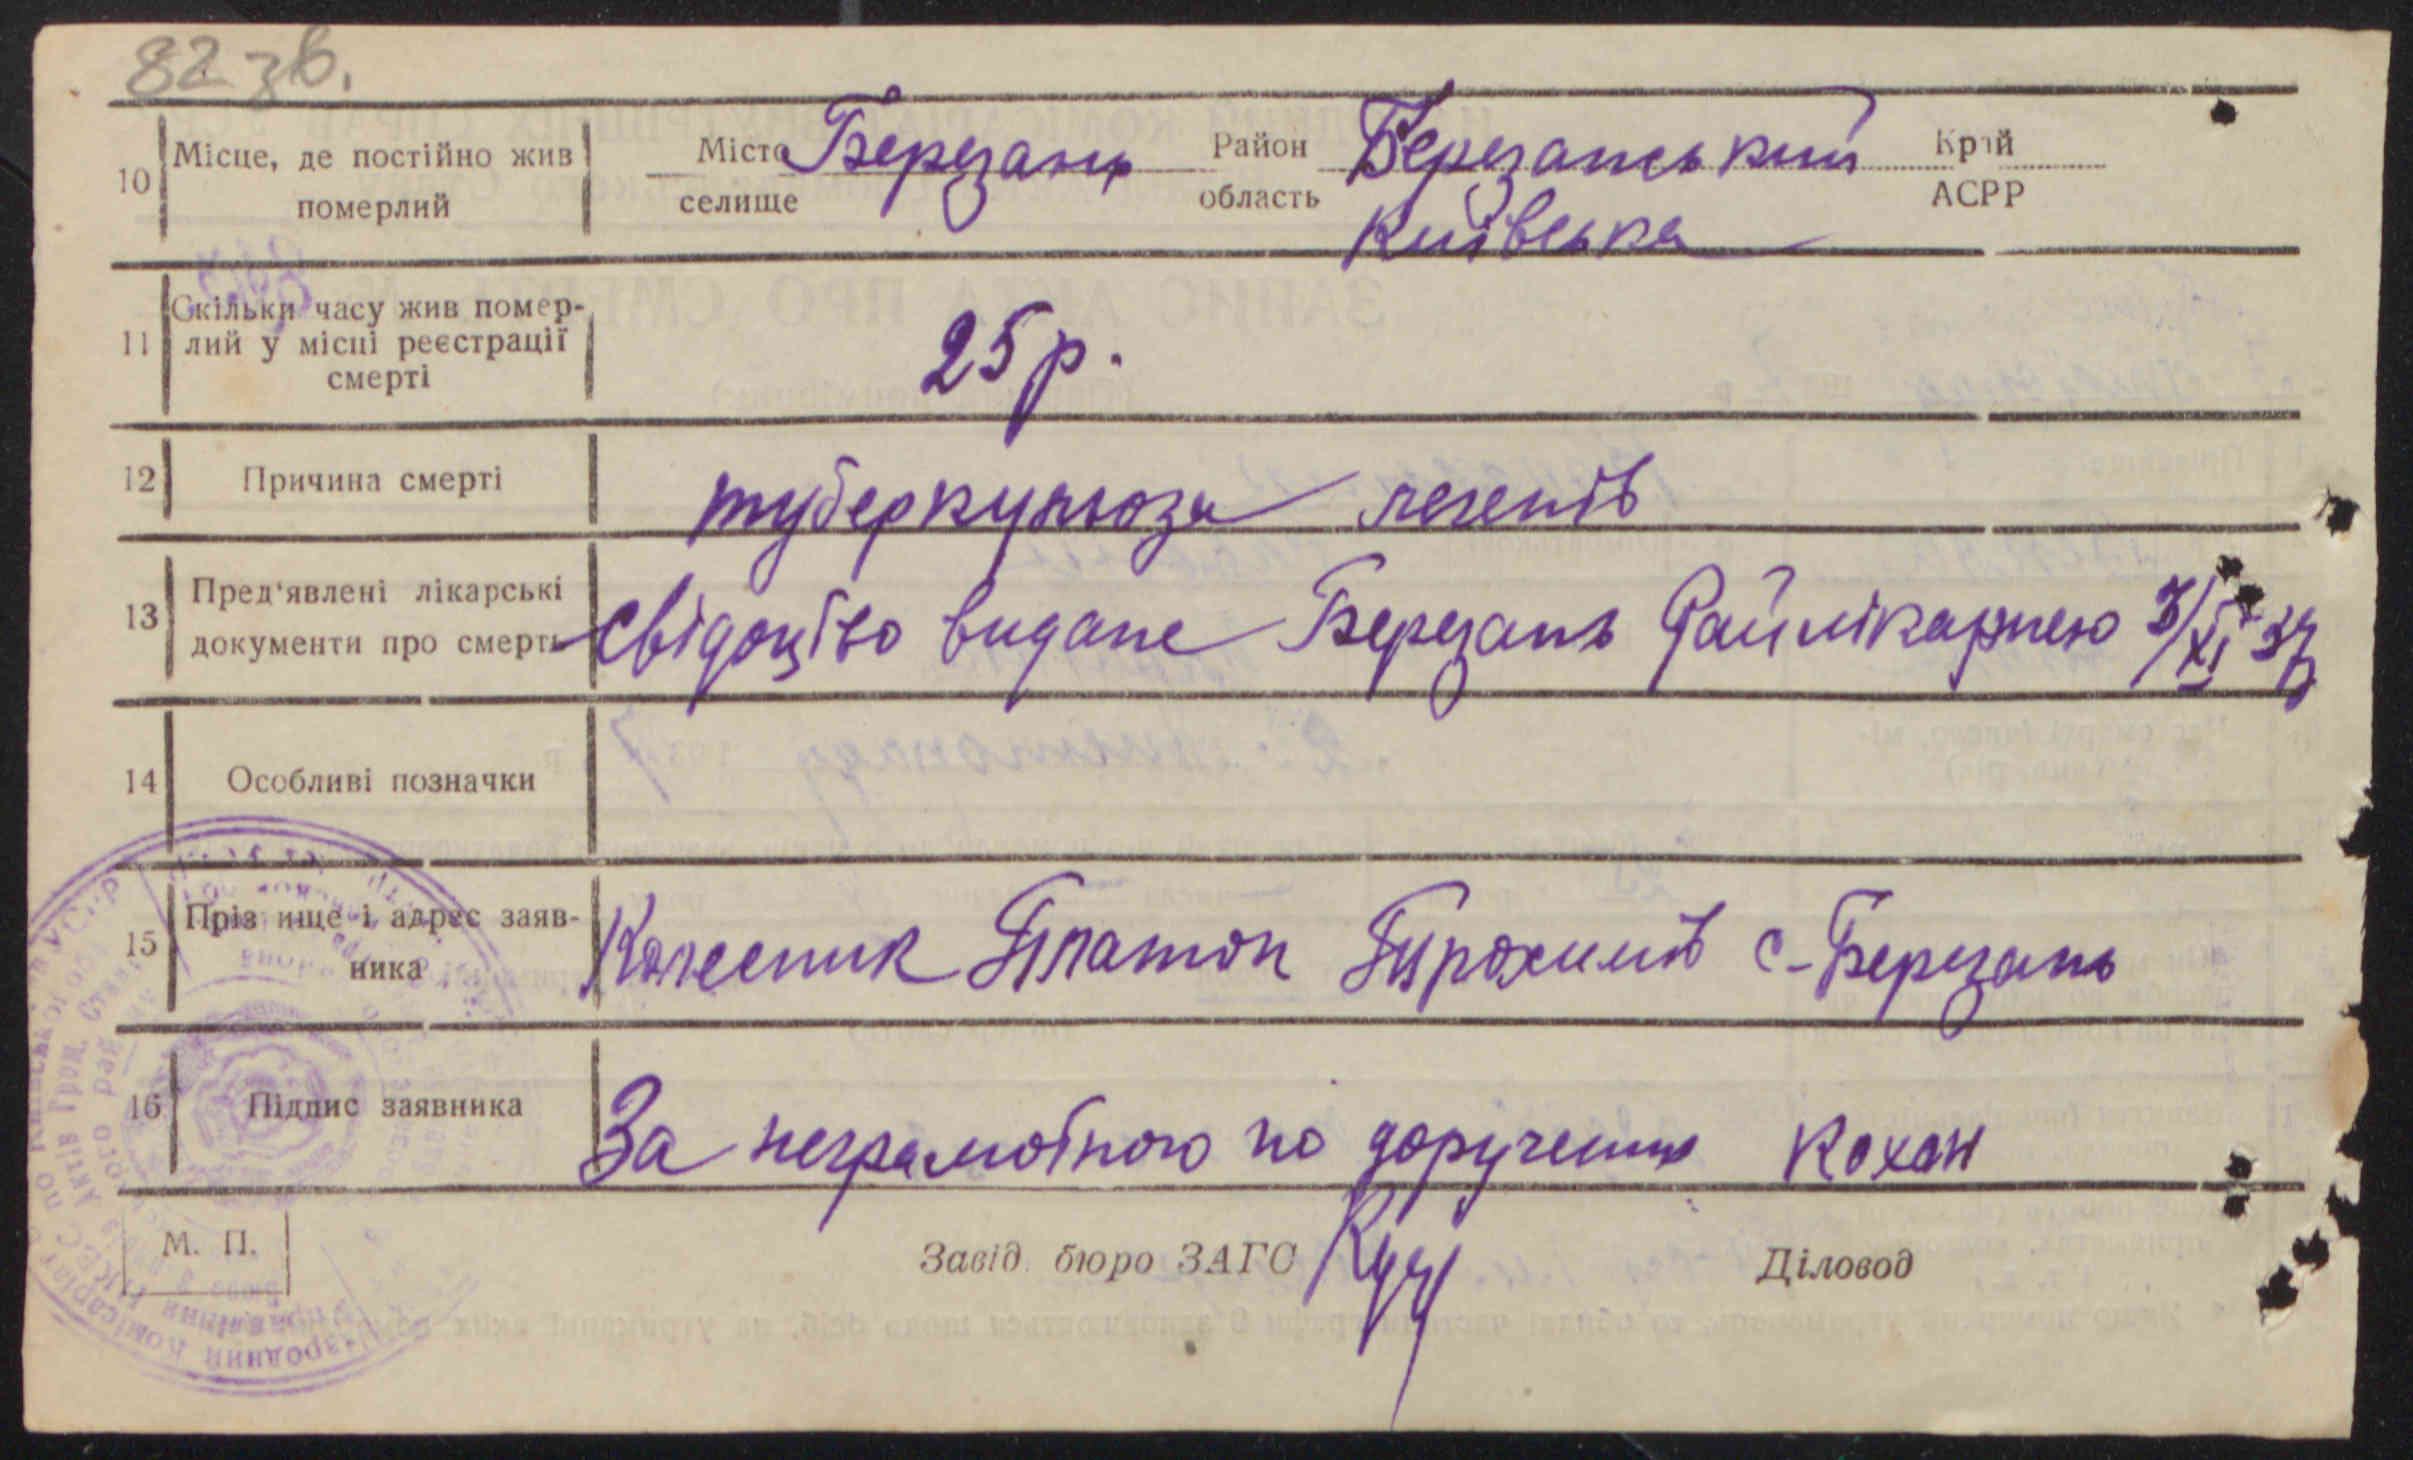 82 зв.
10 Місце, де постійно жив померлий
Місто селище Березань
Район область Березанський
Київська
Край АСРР
11 Скільки часу жив померлий у місці реєстрації смерті
25 р.
12 Причина смерті
туберкульоза легенів
13 Пред'явлені лікарські документи про смерть
Свідоцтво видане Березань Райлікарнею 3/XI 37
14 Особливі позначки
15 Прізвище і адрес заявника
Колесник Платон Трохимів с-Березань
16 Підпис заявника
За неграмотного по дорученню Кохан
М. П.
Завід. бюро ЗАГС
Діловод